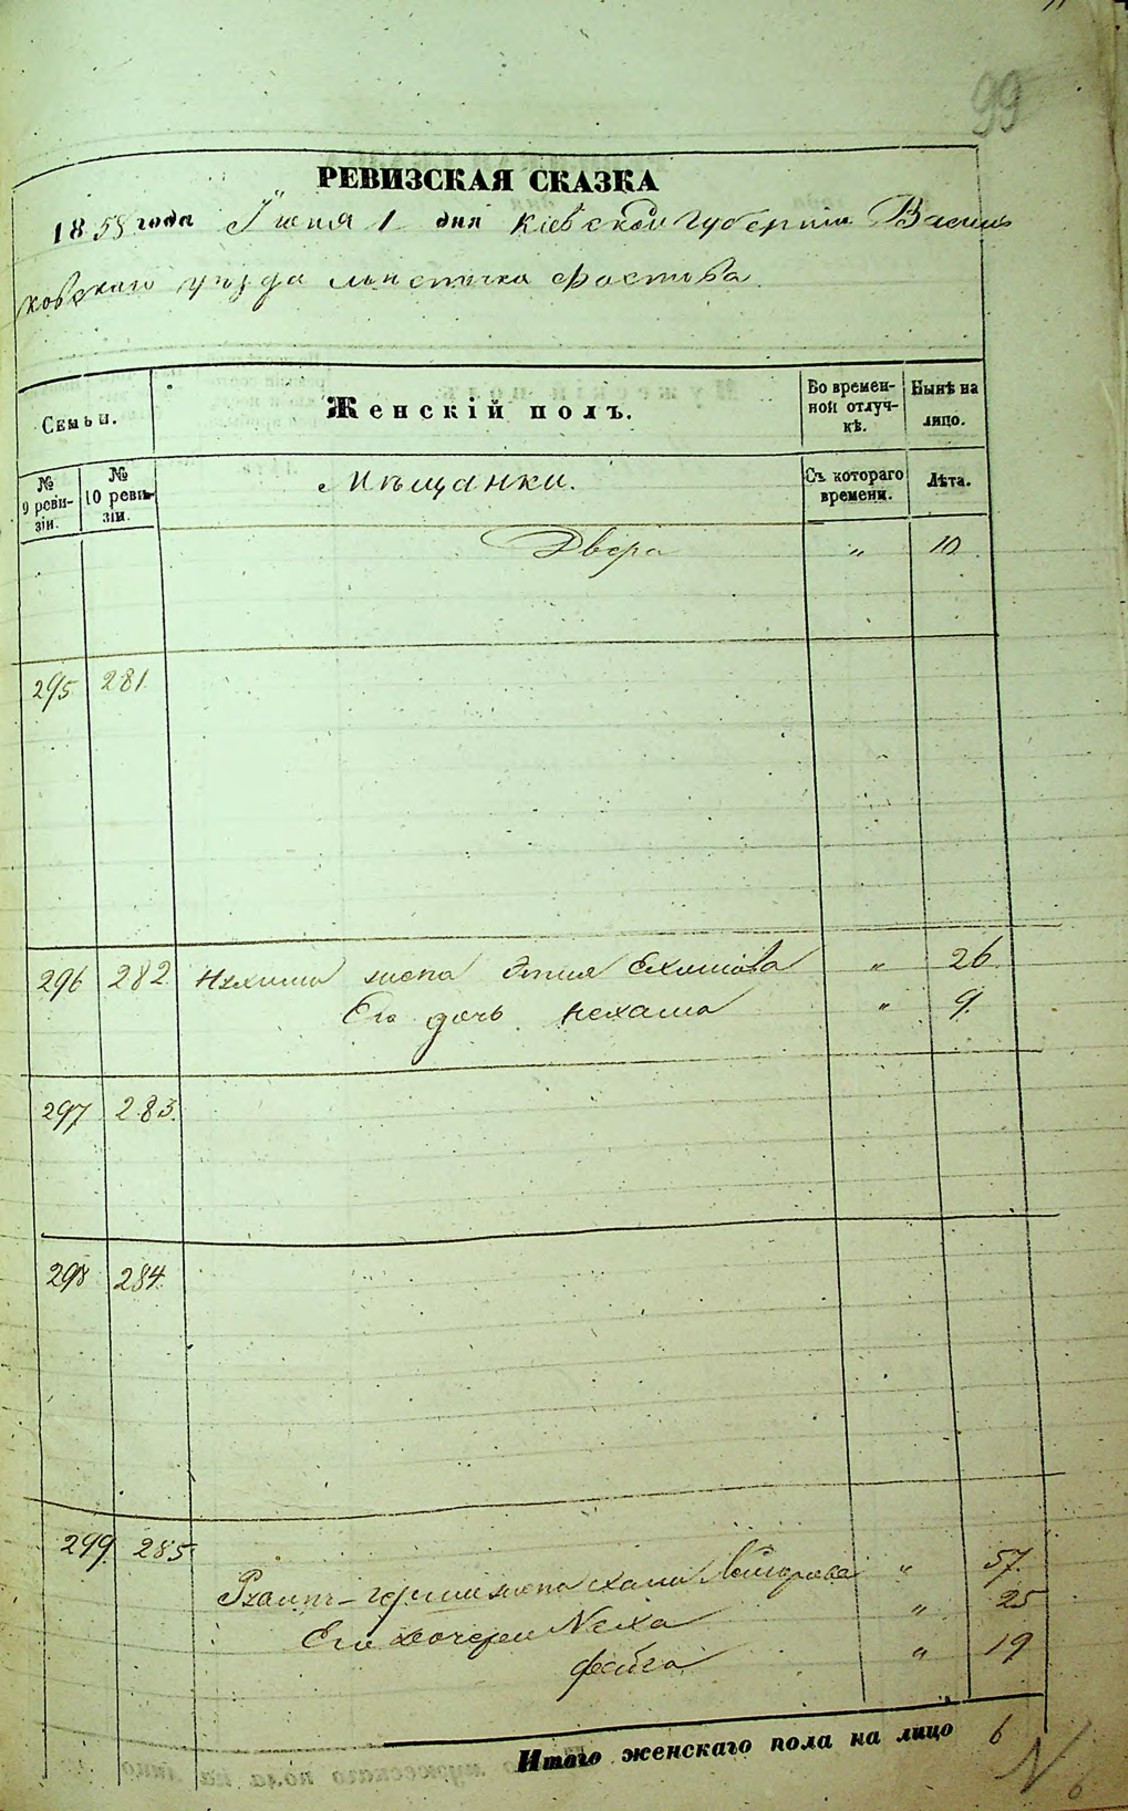 99
РЕВИЗСКАЯ СКАЗКА
1858 года Іюня 1 дня Кіевской Губерніи Василь
ковскаго уѣзда мѣстечка Фастова
Семьи.
Женскій полъ.
Во времен-
ной отлуч-
кѣ.
Нынѣ на
лицо.
№
9 реви-
зіи.
№
10 реви-
зіи.
Мѣщанки.
Съ котораго
времени.
Лѣта.
Двера " 10
295 281.
296 282. жена " 26
Его дочь Нехама " 9.
297 283.
298 284.
299. 285.
жена " 57.
Его дочери Неха " 25
Фейга " 19
Итого женскаго пола на лицо 6
6